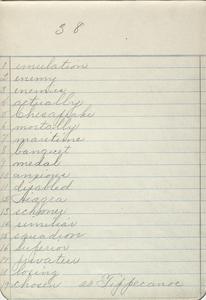 38
1 emulation
2 enemy
3 enemies
4 actually
5 Chesapeake
6 mortally
7 maritime
8 banquet
9 medal
10 anxious
11 disabled
12 Niagra
13
14 similiar
15 squadron
16 superior
17 privateer
18 losing
19 chosen 20 Tippecanoe